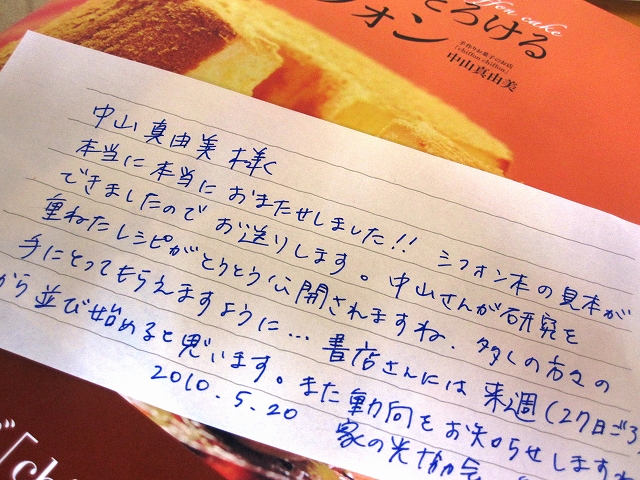 chiffon cake
とろける
フォン
手作りお菓子のお店
「chiffon chiffon」
中山真由美
中山真由美様
本当に本当におまたせしました!! シフォン本の見本が
できましたのでお送りします。中山さんが研究を
重ねたレシピがとうとう公開されますね。多くの方々の
手にとってもらえますように… 書店さんには来週(27日ごろ)
から並び始めると思います。また動向をお知らせしますね
2010.5.20 家の光協会
「ch